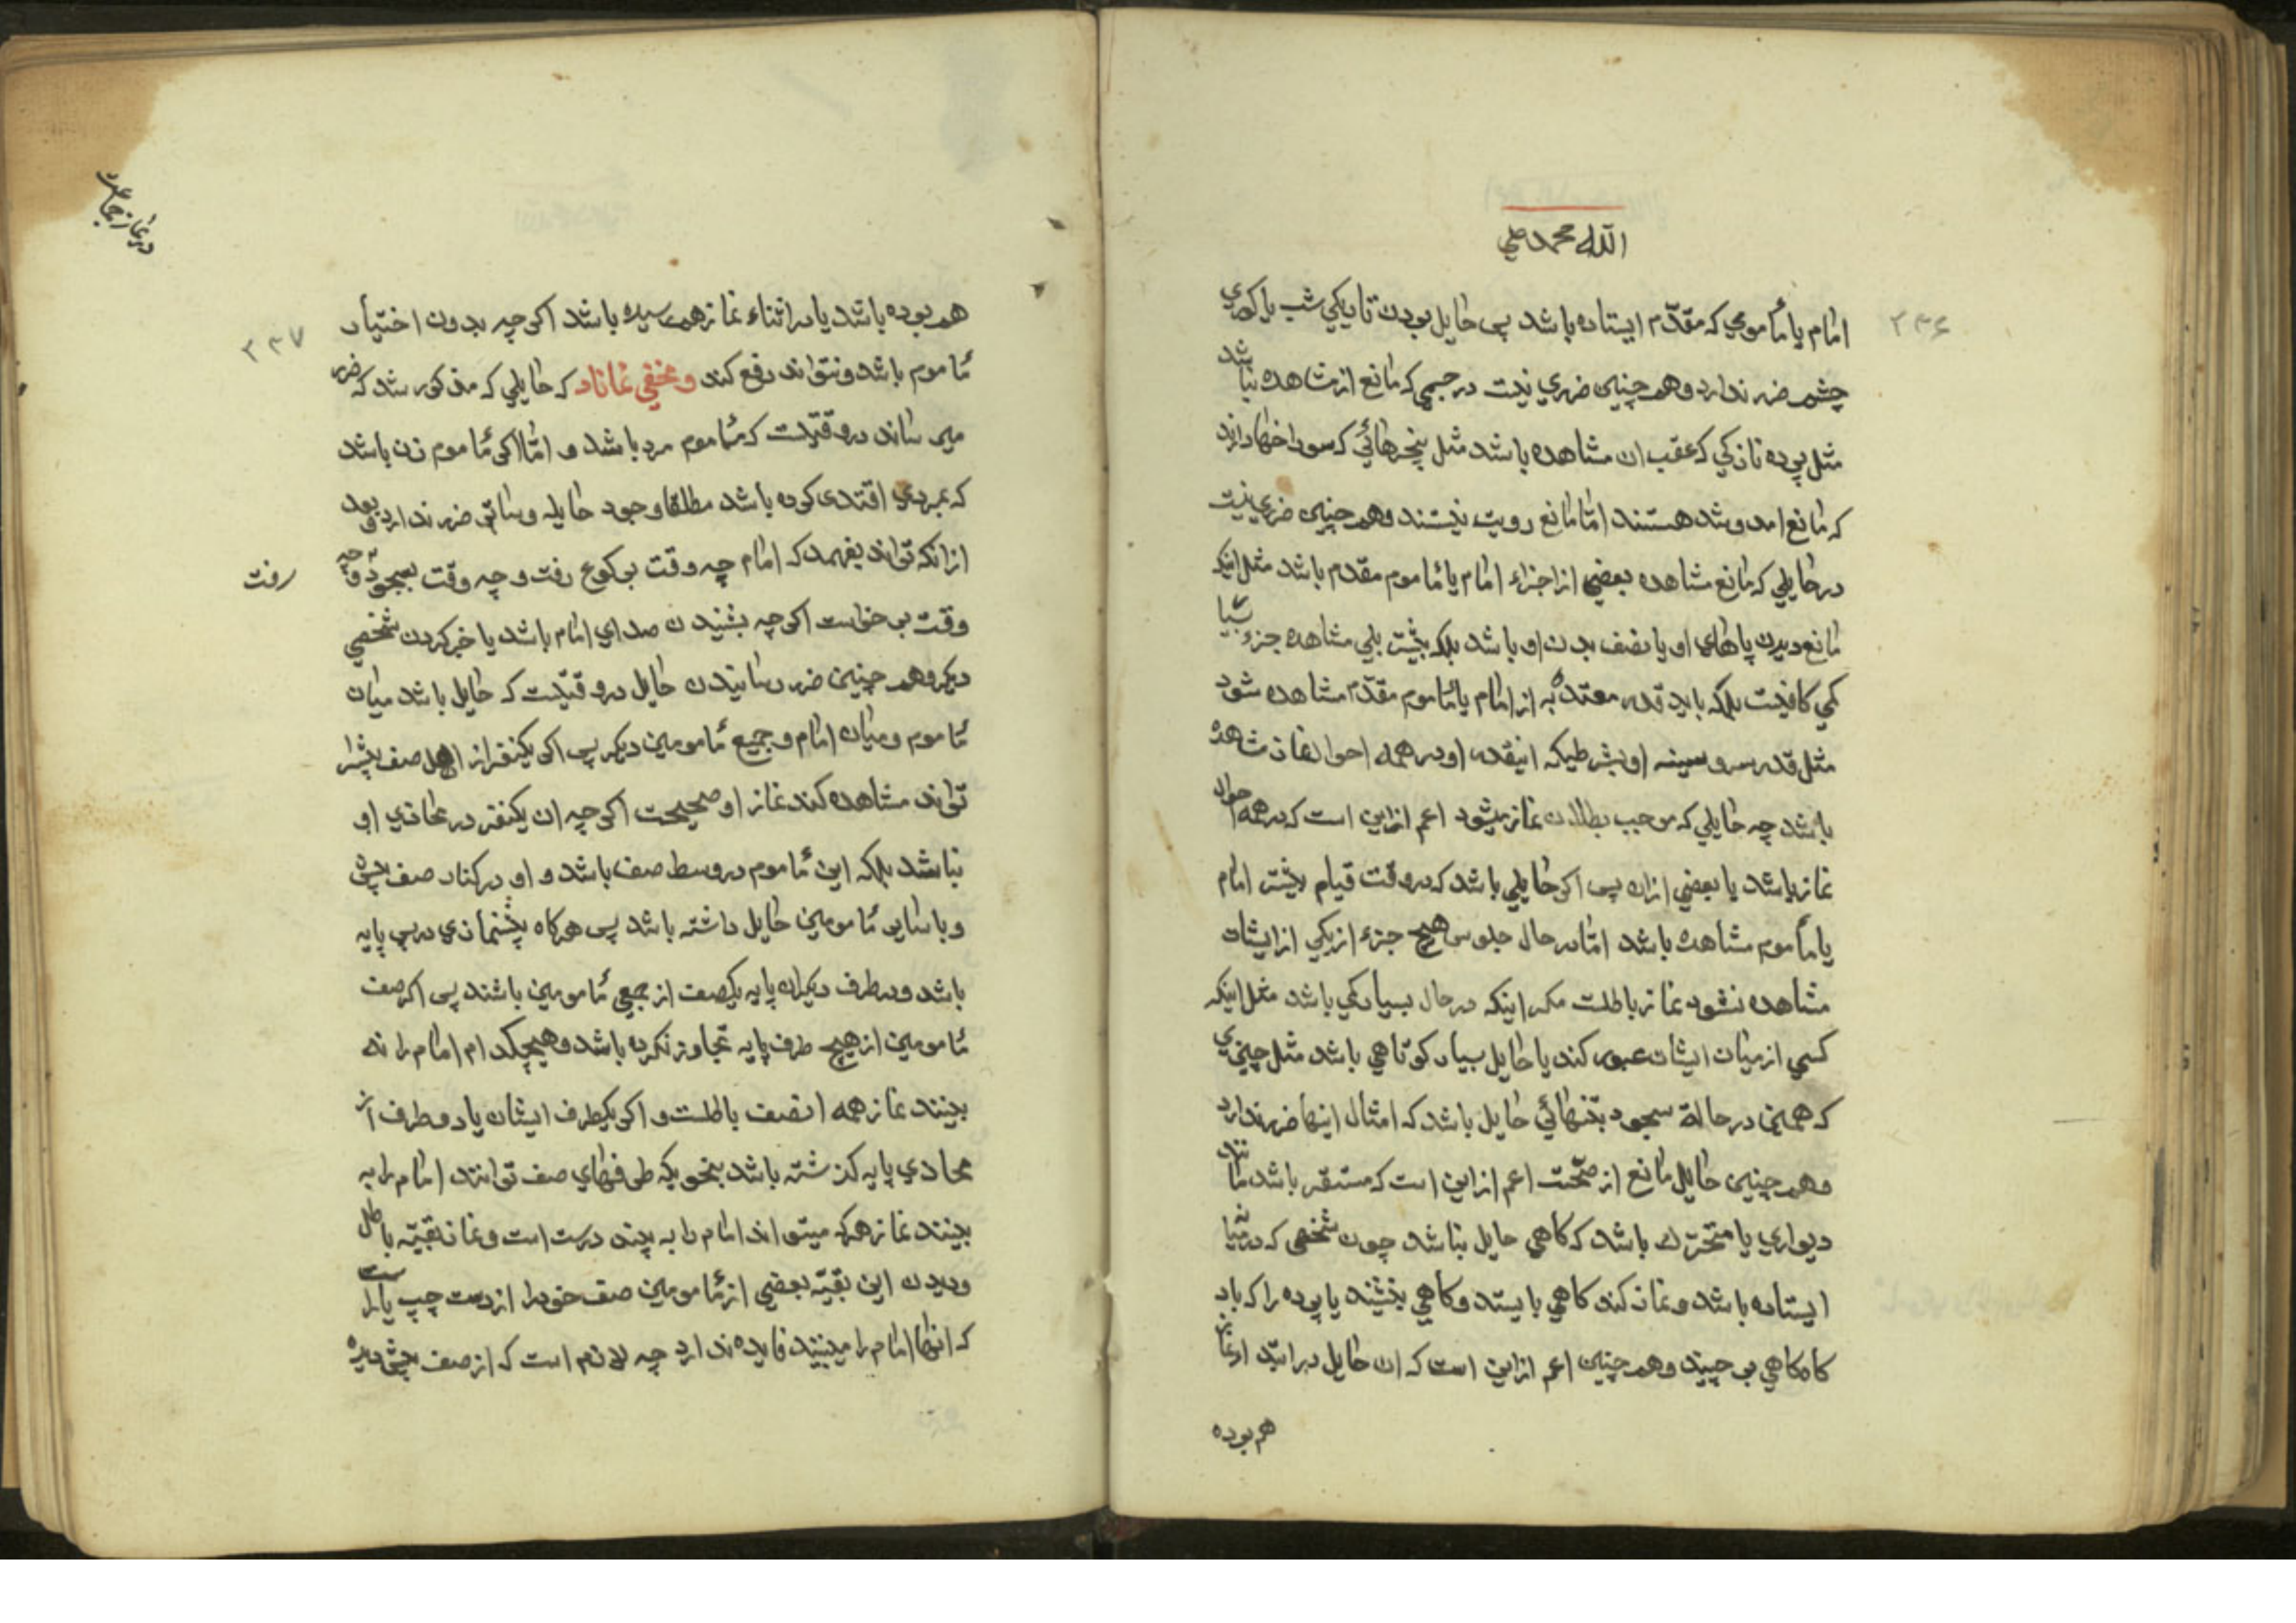 الله محمد علي
۲۳۶
امام یا مأمومي که مقدّم ایستاده باشد پس حایل بودن تاریکي شب یا کوري
چشم ضرر ندارد و همچنین ضرري نیست در جسمي که مانع از مشاهده نباشد
مثل پرده نازکي که عقب ان مشاهده باشد مثل پنجرهائي که سوراخها دارند
که مانع امد و شد هستند امّا مانع رویت نیستند و همچنین ضرري نیست
در حایلي که مانع مشاهده بعضي از اجزاء امام یا مأموم مقدم باشد مثل اینکه
مانع دیدن پاهاي او یا نصف بدن او باشد بلکه بیشتر بلي مشاهده جزء بسیا
کمي کافیست بلکه باید قدر معتدّ به از امام یا مأموم مقدّم مشاهده شود
مثل قدر سر و سینه او بشرطیکه اینقدر او در همه احوال نماز مشاهده
باشد چه حایلي که موجب بطلان نماز میشود اعم ازاین است که در همه احوال
نماز باشد یا بعضي ازان پس اکر حایلي باشد که در وقت قیام بیشتر امام
یا مأموم مشاهده باشد امّا در حال جلوس هیچ جزء از یکي از ایشان
مشاهده نشود نماز باطلست مکر اینکه در حال بسیار کمي باشد مثل اینکه
کسي از میان ایشان عبور کند یا حایل بسیار کوتاهي باشد مثل چیزي
که همین در حالة سجود بتنهائي حایل باشد که امثال اینها ضرر ندارد
و همچنین حایل مانع از صحّت اعم ازاین است که مستقر باشد مانند
دیواري یا متحرّک باشد که کاهي حایل نباشد چون شخصي که در میانه
ایستاده باشد و نماز کند کاهي بایستد و کاهي بنشیند یا پرده را که باد
کاه کاهي بر چیند و همچنین اعم ازاین است که ان حایل در ابتداء نماز
هم بوده
در نماز جماعت
۲۳۷
هم بوده باشد یا در اثناء نماز بهم رسیده باشد اکر چه بدون اختیار
مأموم باشد و نتواند رفع کند و مخفي نماناد که حایلي که مذکور شد که ضرر
میرساند در وقتیست که مأموم مرد باشد و امّا اکر مأموم زن باشد
که بمردي اقتدى کرده باشد مطلقا وجود حایل و ساتر ضرر ندارد بعد
ازانکه تواند بفهمد که امام چه وقت برکوع رفت و چه وقت بسجود و چه
رفت
وقت برخواست اکر چه بشنیدن صداي امام باشد یا خبر کردن شخصي
دیکر و همچنین ضرر رسانیدن حایل در وقتیست که حایل باشد میان
مأموم و میان امام و جمیع مأمومین دیکر پس اکر یکنفر از اهل صف پیش را
تواند مشاهده کند نماز او صحیحست اکر چه ان یکنفر در محاذي او
نباشد بلکه این مأموم در وسط صف باشد و او در کنار صف پیش
و با سایر مأمومین حایل داشته باشد پس هرکاه پیشنمازي در پس پایه
باشد و در طرف دیکر ان پایه یکصف از جمیع مأمومین باشند پس اکر صف
مأمومین از هیچ طرف پایه تجاوز نکرده باشد و هیچکدام امام را نه
بینند نماز همه انصف باطلست و اکر یکطرف ایشان یا دو طرف از
محاذي پایه کذشته باشد بنحویکه طرفهاي صف توانند امام را به
بینند نماز هرکه میتواند امام را به بیند درست است و نماز بقیّه باطل
و دیدن این بقیّه بعضي از مأمومین صف خود را از دست چپ یا راست
که انها امام را میبینند فایده ندارد چه لازم است که از صف پیش دیده